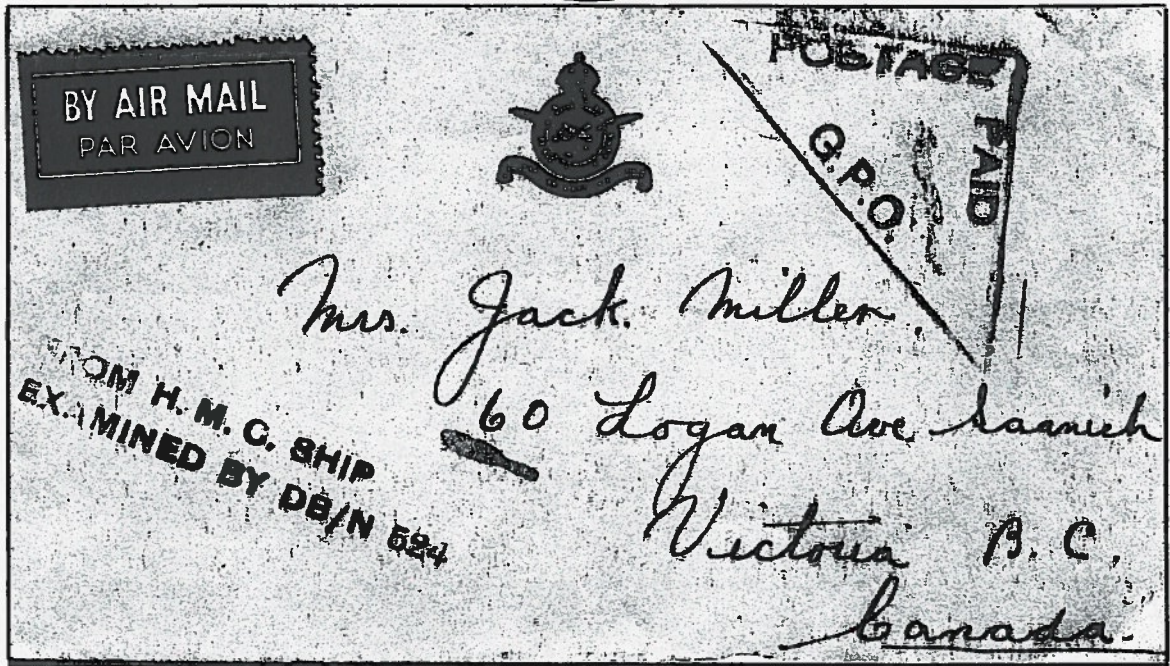 BY AIR MAIL
PAR AVION
POSTAGE
PAID
G.P.O.
Mrs. Jack. Miller
60 Logan Ave Saanich
Victoria B.C.
Canada.
H. M. C. SHIP
EXAMINED BY DB/N 624